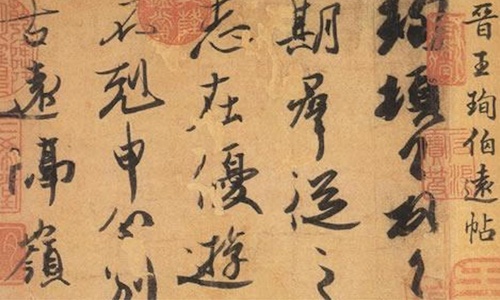 晉王珣伯遠帖
珣頓首頓首
期羣從之
志在優游
不剋申分別
古遠隔嶺